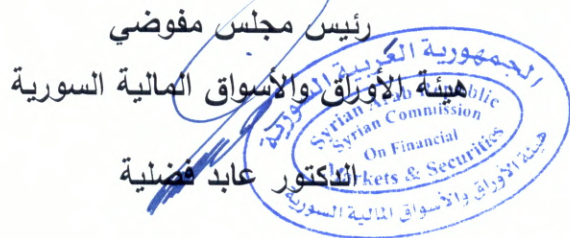 رئيس مجلس مفوضي
هيئة الأوراق والأسواق المالية السورية
الدكتور عابد فضلية
الجمهورية العربية السورية
Syrian Arab Republic
Syrian Commission
On Financial
Markets & Securities
هيئة الأوراق والأسواق المالية السورية